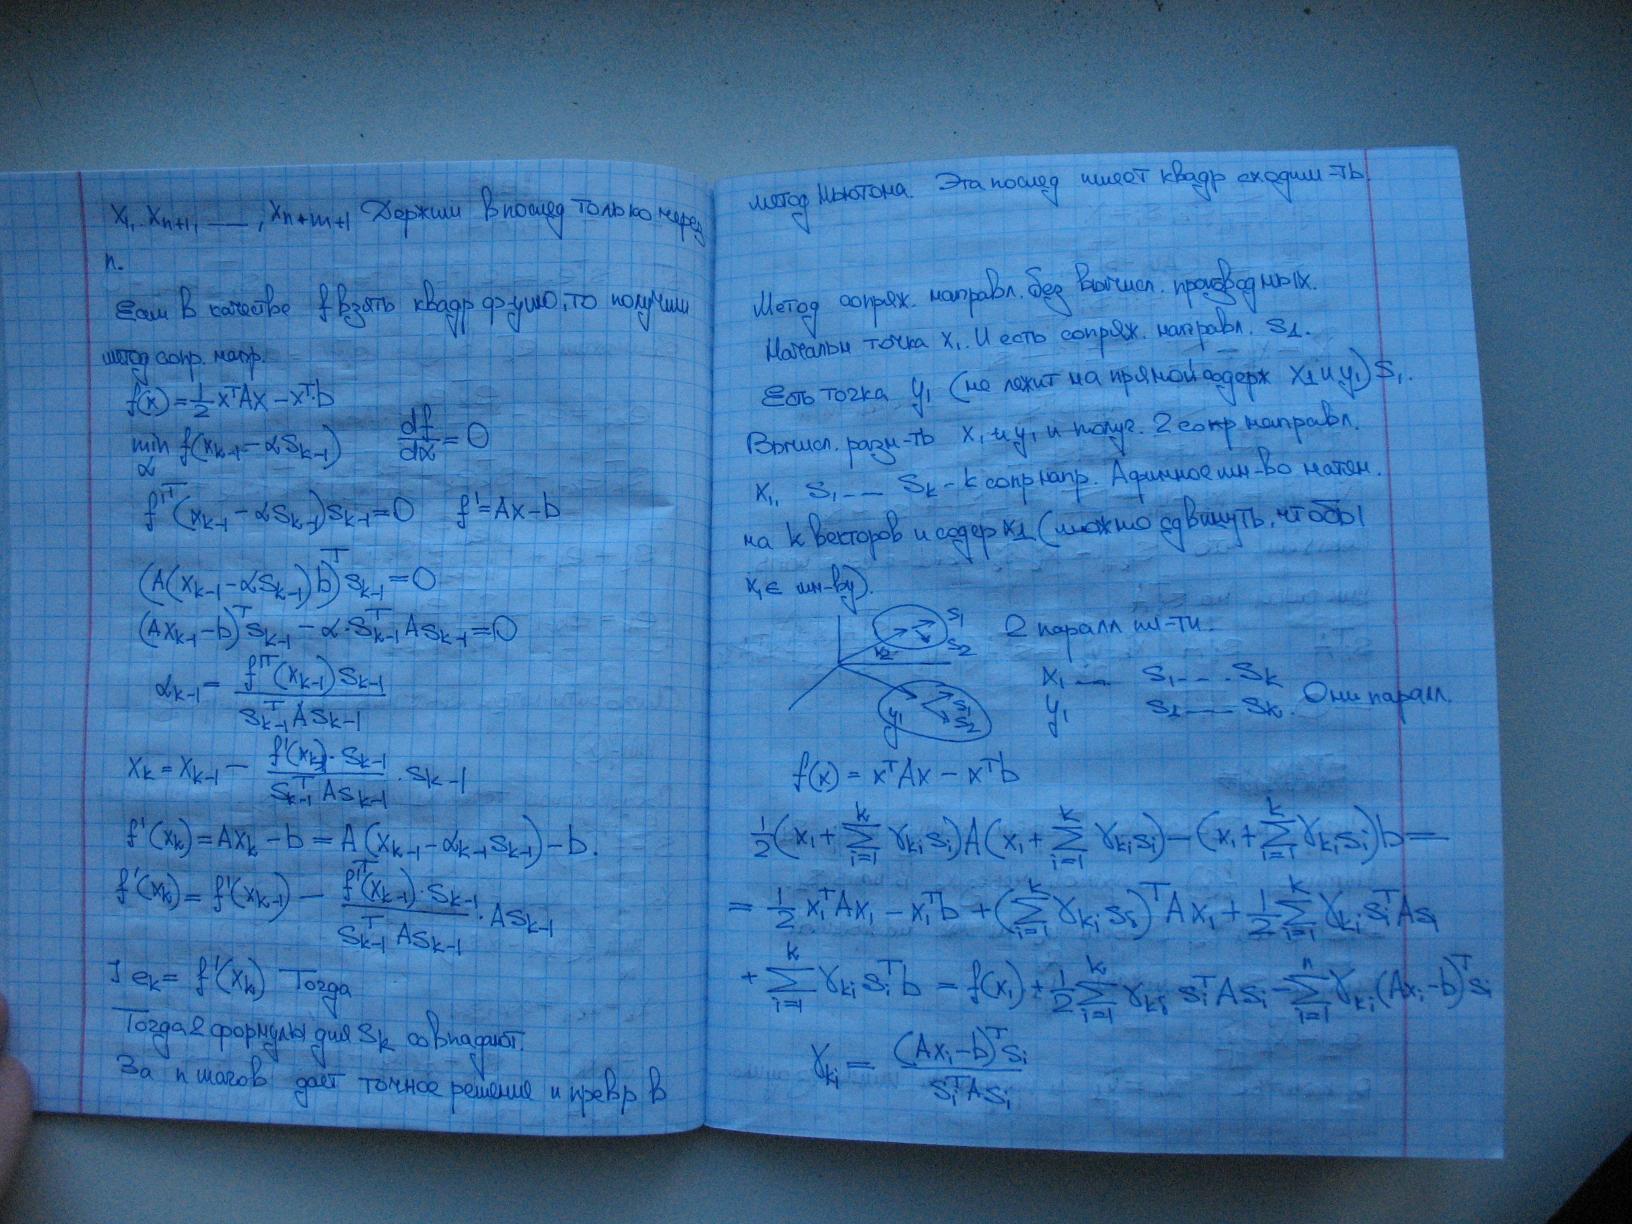 x₁, xₙ₊₁, ..., xₙ₊ₘ₊₁ Держим в послед только через
n.
Если в качестве f взять квадр ф-цию, то получим
метод сопр. напр.
f(x) = 1/2 xᵀAx − xᵀb
min_α f(xₖ₋₁ − αsₖ₋₁)    df/dα = 0
f'ᵀ(xₖ₋₁ − αsₖ₋₁)sₖ₋₁ = 0    f' = Ax − b
(A(xₖ₋₁ − αsₖ₋₁) b)ᵀsₖ₋₁ = 0
(Axₖ₋₁ − b)ᵀsₖ₋₁ − α·sᵀₖ₋₁Asₖ₋₁ = 0
αₖ₋₁ = f'ᵀ(xₖ₋₁)sₖ₋₁ / sᵀₖ₋₁Asₖ₋₁
xₖ = xₖ₋₁ − f'(xₖ)·sₖ₋₁ / sᵀₖ₋₁Asₖ₋₁ · sₖ₋₁
f'(xₖ) = Axₖ − b = A(xₖ₋₁ − αₖ₋₁sₖ₋₁) − b.
f'(xₖ) = f'(xₖ₋₁) − f'ᵀ(xₖ₋₁)·sₖ₋₁ / sᵀₖ₋₁Asₖ₋₁ · Asₖ₋₁
eₖ = f'(xₖ) Тогда
Тогда 2 формулы для sₖ совпадают.
За n шагов дает точное решение и превр в
метод Ньютона. Эта послед имеет квадр сходим-ть.
Метод сопряж. направл. без вычисл. производных.
Начальн точка x₁. И есть сопряж. направл. s₁.
Есть точка y₁ (не лежит на прямой содерж x₁ и y₁) s₁.
Вычисл. разн-ть x₁ и y₁ и получ. 2 сопр направл.
x₁, s₁ ... sₖ - k сопр напр. Афинное мн-во натян.
на k векторов и содер x₁ (можно сдвинуть, чтобы
x₁ ∈ мн-ву).
s₁
s₂
x₂
2 паралл пл-ти.
x₁ ... s₁ ... sₖ
y₁ s₁ ... sₖ. Они паралл.
y₁
s₁
s₂
f(x) = xᵀAx − xᵀb
1/2(x₁ + Σᵢ₌₁ᵏ γₖᵢsᵢ)A(x₁ + Σᵢ₌₁ᵏ γₖᵢsᵢ) − (x₁ + Σᵢ₌₁ᵏ γₖᵢsᵢ)b =
= 1/2 x₁ᵀAx₁ − x₁ᵀb + (Σᵢ₌₁ᵏ γₖᵢsᵢ)ᵀAx₁ + 1/2 Σᵢ₌₁ᵏ γₖᵢsᵢᵀAsᵢ
+ Σᵢ₌₁ᵏ γₖᵢsᵢᵀb = f(x₁) + 1/2 Σᵢ₌₁ᵏ γₖᵢ sᵢᵀAsᵢ − Σᵢ₌₁ⁿ γₖᵢ(Axᵢ − b)ᵀsᵢ
γₖᵢ = (Axᵢ − b)ᵀsᵢ / sᵢᵀAsᵢ